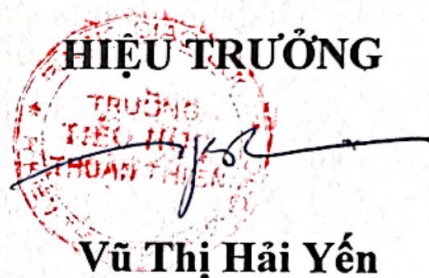 HIỆU TRƯỞNG
TRƯỜNG
TIỂU HỌC
THUẬN THIÊN
Vũ Thị Hải Yến